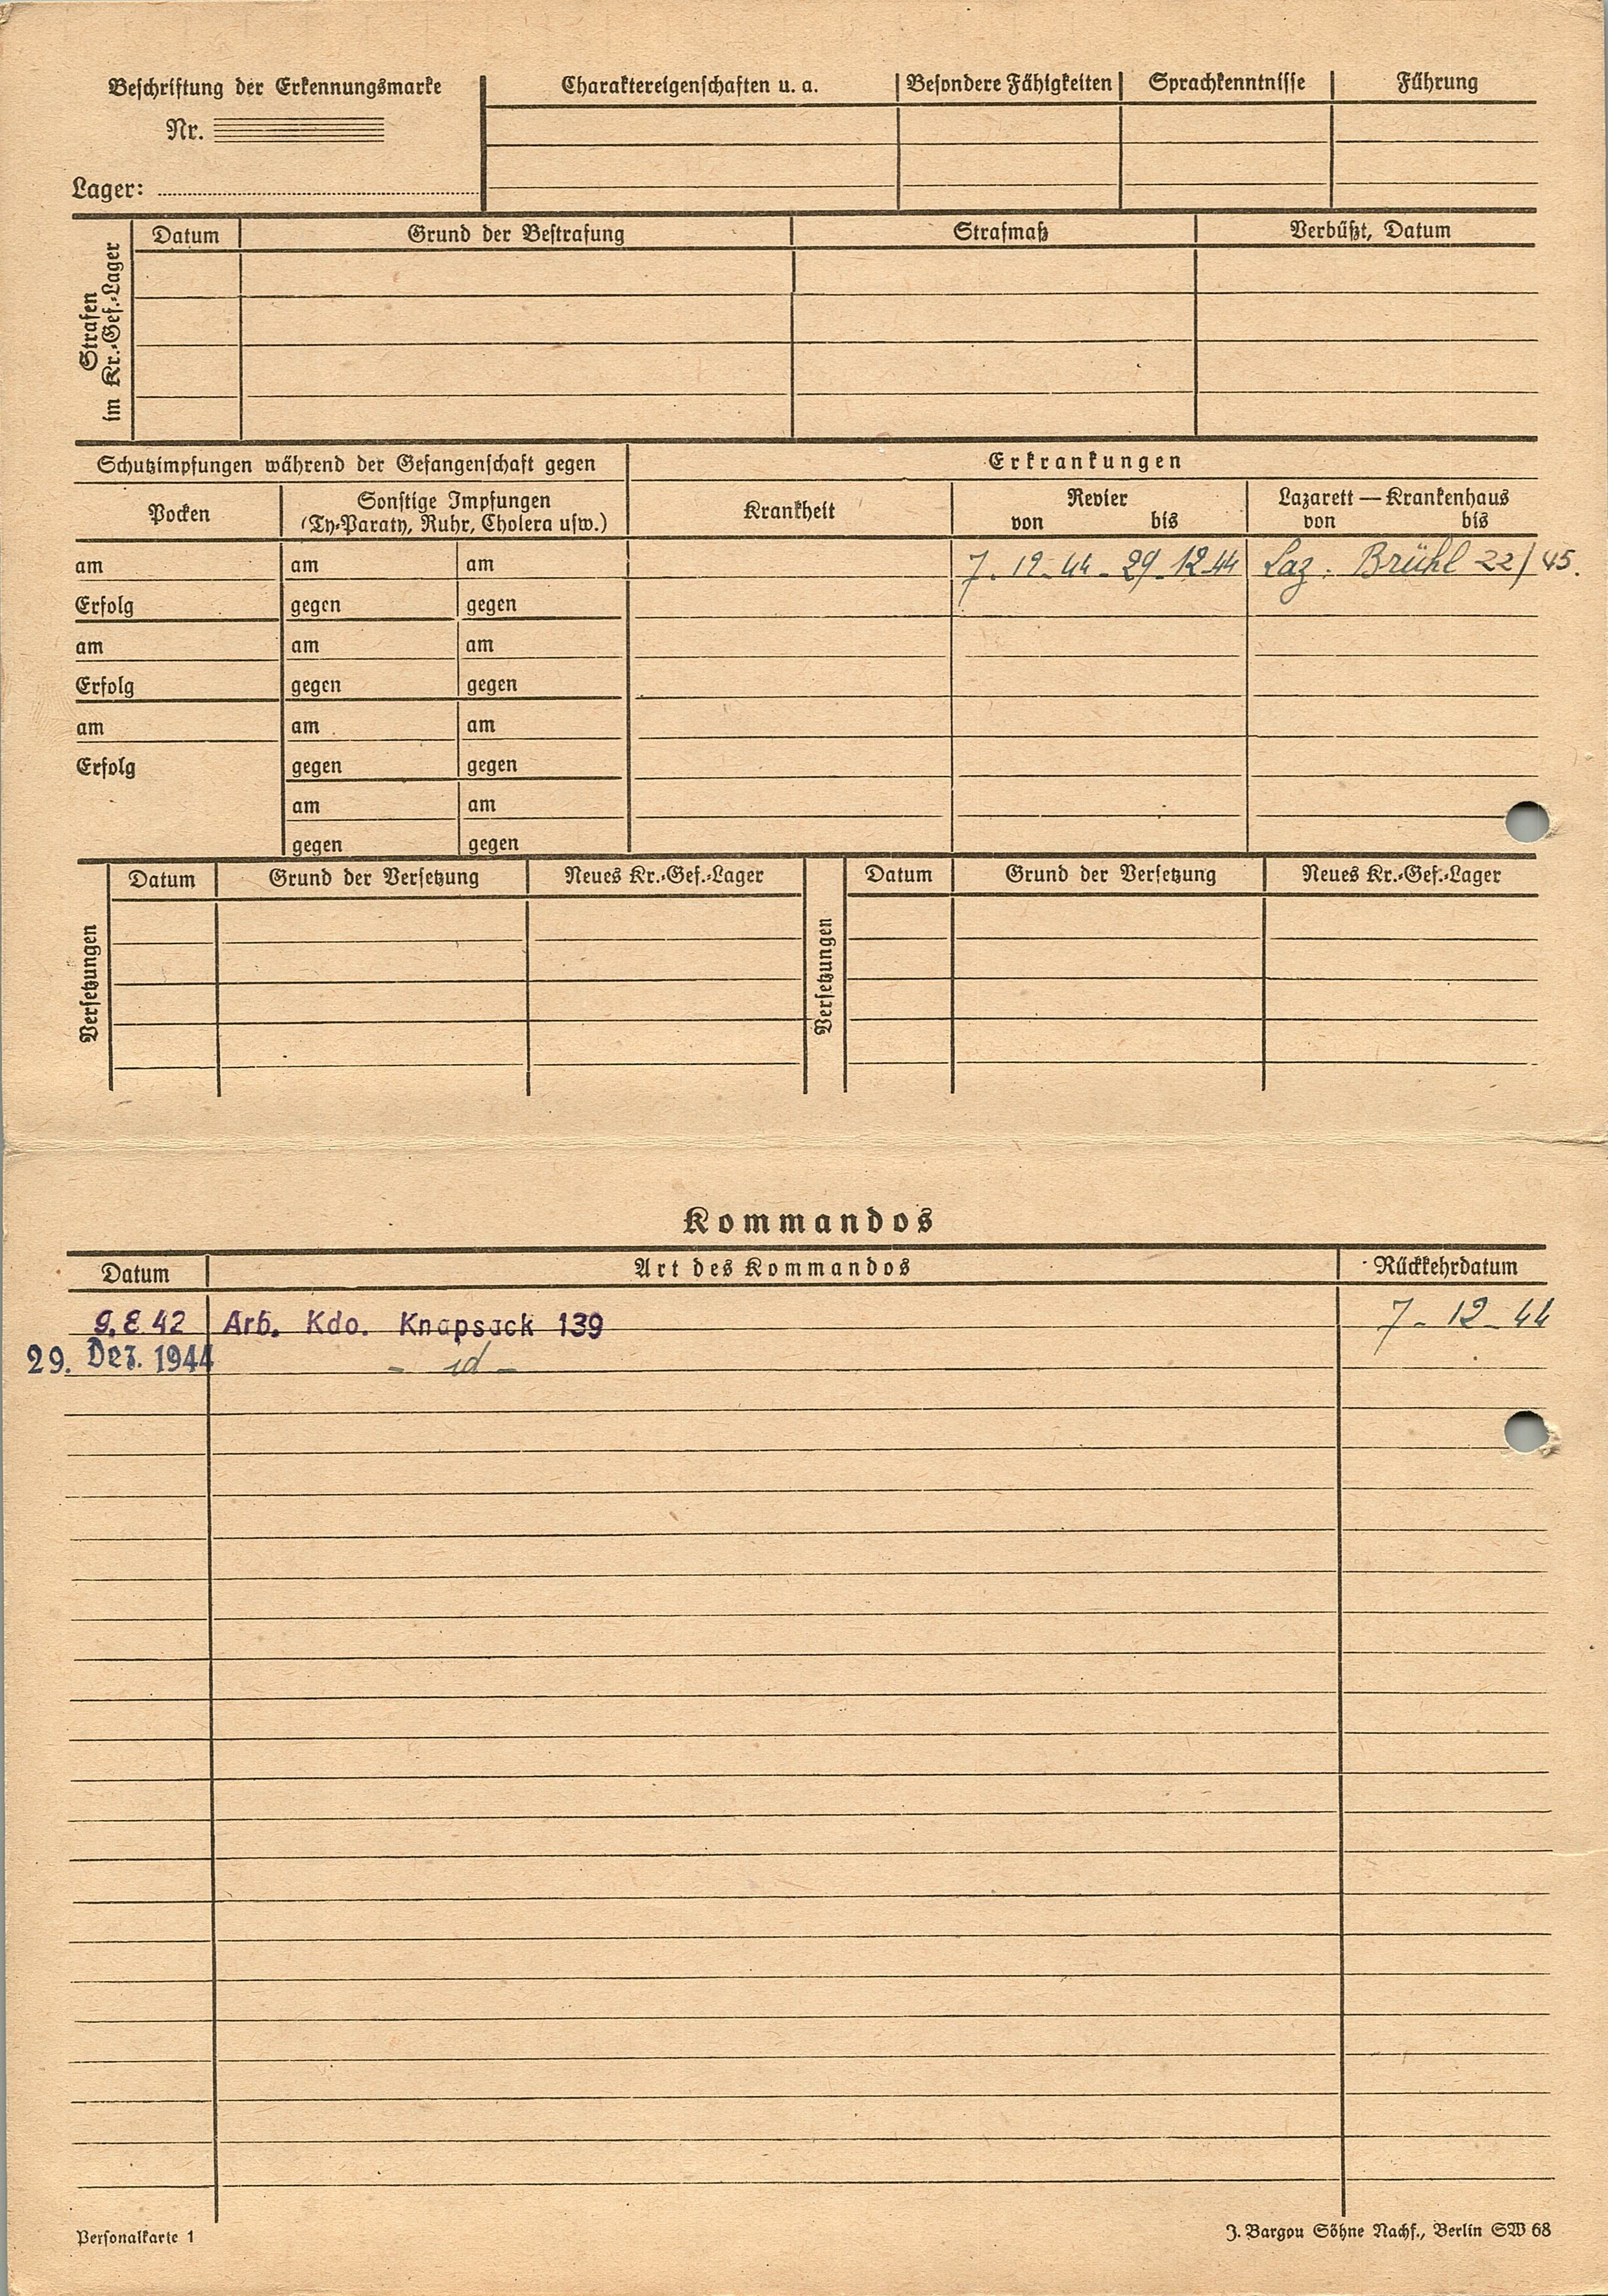 Beschriftung der Erkennungsmarke
Nr.
Lager:
Charaktereigenschaften u. a. Besondere Fähigkeiten Sprachkenntnisse Führung
Strafen im Kr.-Gef.-Lager
Datum Grund der Bestrafung Strafmaß Verbüßt, Datum
Schutzimpfungen während der Gefangenschaft gegen Erkrankungen
Pocken Sonstige Impfungen Krankheit Revier Lazarett — Krankenhaus
(Ty-Paraty, Ruhr, Cholera usw.) von bis von bis
am am am 7. 12. 44 - 29. 12. 44 Laz. Brühl 22/45.
Erfolg gegen gegen
am am am
Erfolg gegen gegen
am am am
Erfolg gegen gegen
am am
gegen gegen
Versetzungen Datum Grund der Versetzung Neues Kr.-Gef.-Lager Versetzungen Datum Grund der Versetzung Neues Kr.-Gef.-Lager
Kommandos
Datum Art des Kommandos Rückkehrdatum
9. 8. 42 Arb. Kdo. Knapsack 139 7 - 12 - 44
29. Dez. 1944 - id -
Personalkarte 1 J. Bargou Söhne Nachf., Berlin SW 68